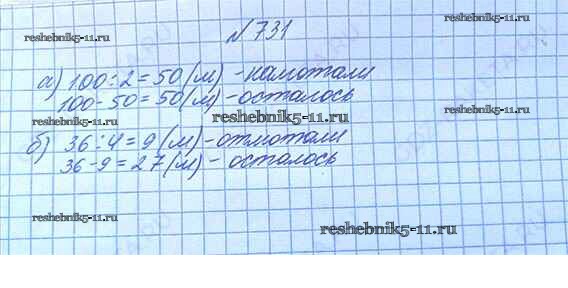 reshebnik5-11.ru
№731
reshebnik5-11.ru
а) 100:2=50(м) - намотали
100-50=50(м) - осталось
reshebnik5-11.ru
б) 36:4=9(м) - отмотали
36-9=27(м) - осталось
reshebnik5-11.ru
reshebnik5-11.ru
reshebnik5-11.ru